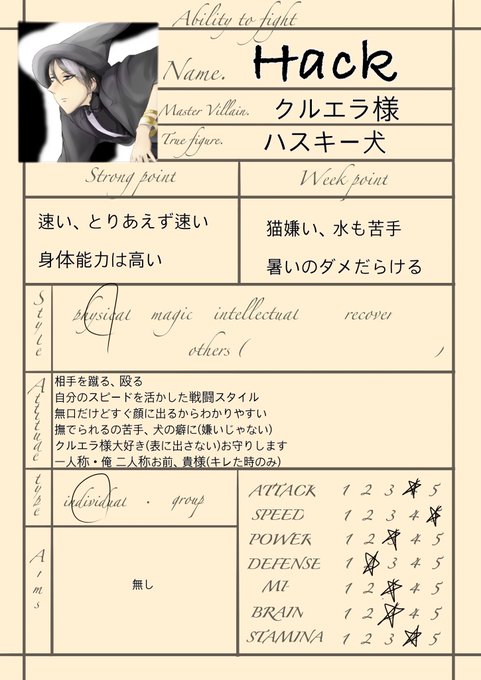 Ability to fight
Name. Hack
Master Villain. クルエラ様
True figure. ハスキー犬
Strong point
Week point
速い、とりあえず速い
身体能力は高い
猫嫌い、水も苦手
暑いのダメだらける
Style
physical magic intellectual recover
others ( )
Attitude
相手を蹴る、殴る
自分のスピードを活かした戦闘スタイル
無口だけどすぐ顔に出るからわかりやすい
撫でられるの苦手、犬の癖に(嫌いじゃない)
クルエラ様大好き(表に出さない)お守りします
一人称・俺 二人称お前、貴様(キレた時のみ)
type
individual · group
Arms
無し
ATTACK 1 2 3 4 5
SPEED 1 2 3 4 5
POWER 1 2 3 4 5
DEFENSE 1 2 3 4 5
MP 1 2 3 4 5
BRAIN 1 2 3 4 5
STAMINA 1 2 3 4 5